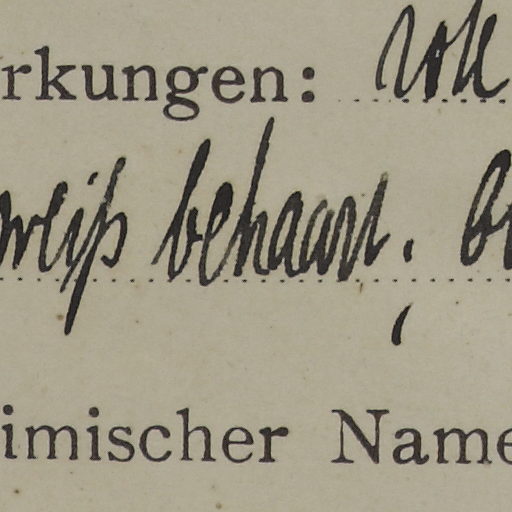 rkungen:
weiß behaart;
imischer Name